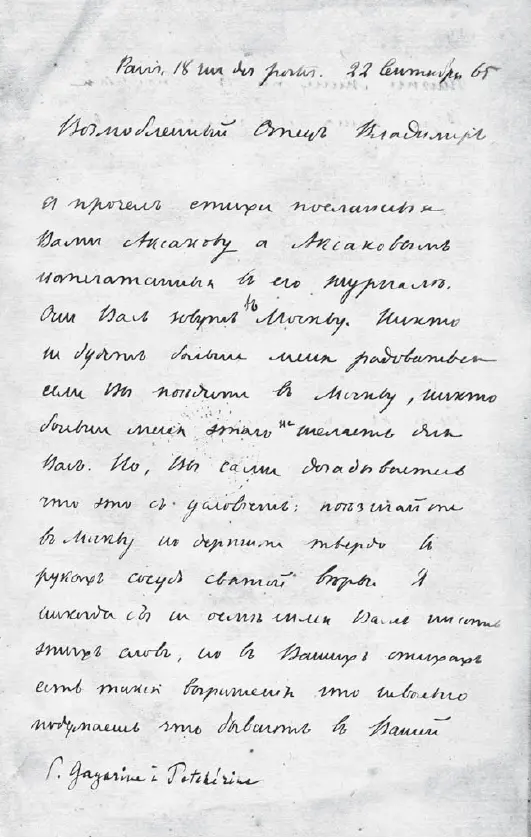 Paris, 18 rue des postes. 22 Сентября 65
Возлюбленный Отецъ Владимиръ
Я прочелъ стихи посланныя
Вами Аксакову а Аксаковымъ
напечатанныя въ его журналѣ.
Они Васъ зовутъ въ Москву. Никто
не будетъ больше меня радоваться
если Вы поѣдите въ Москву, никто
больше меня этаго не желаетъ для
Васъ. Но, Вы сами догадываетесь
что это съ условіемъ: поѣзжайте
въ Москву но держите твердо въ
рукахъ сосудъ святой вѣры. Я
никогда бы не осмѣлился Вамъ писать
этихъ словъ, но въ Вашихъ стихахъ
есть такія выраженія что невольно
подумаешь что бываютъ въ Вашей
P. Gagarine à Petchérine